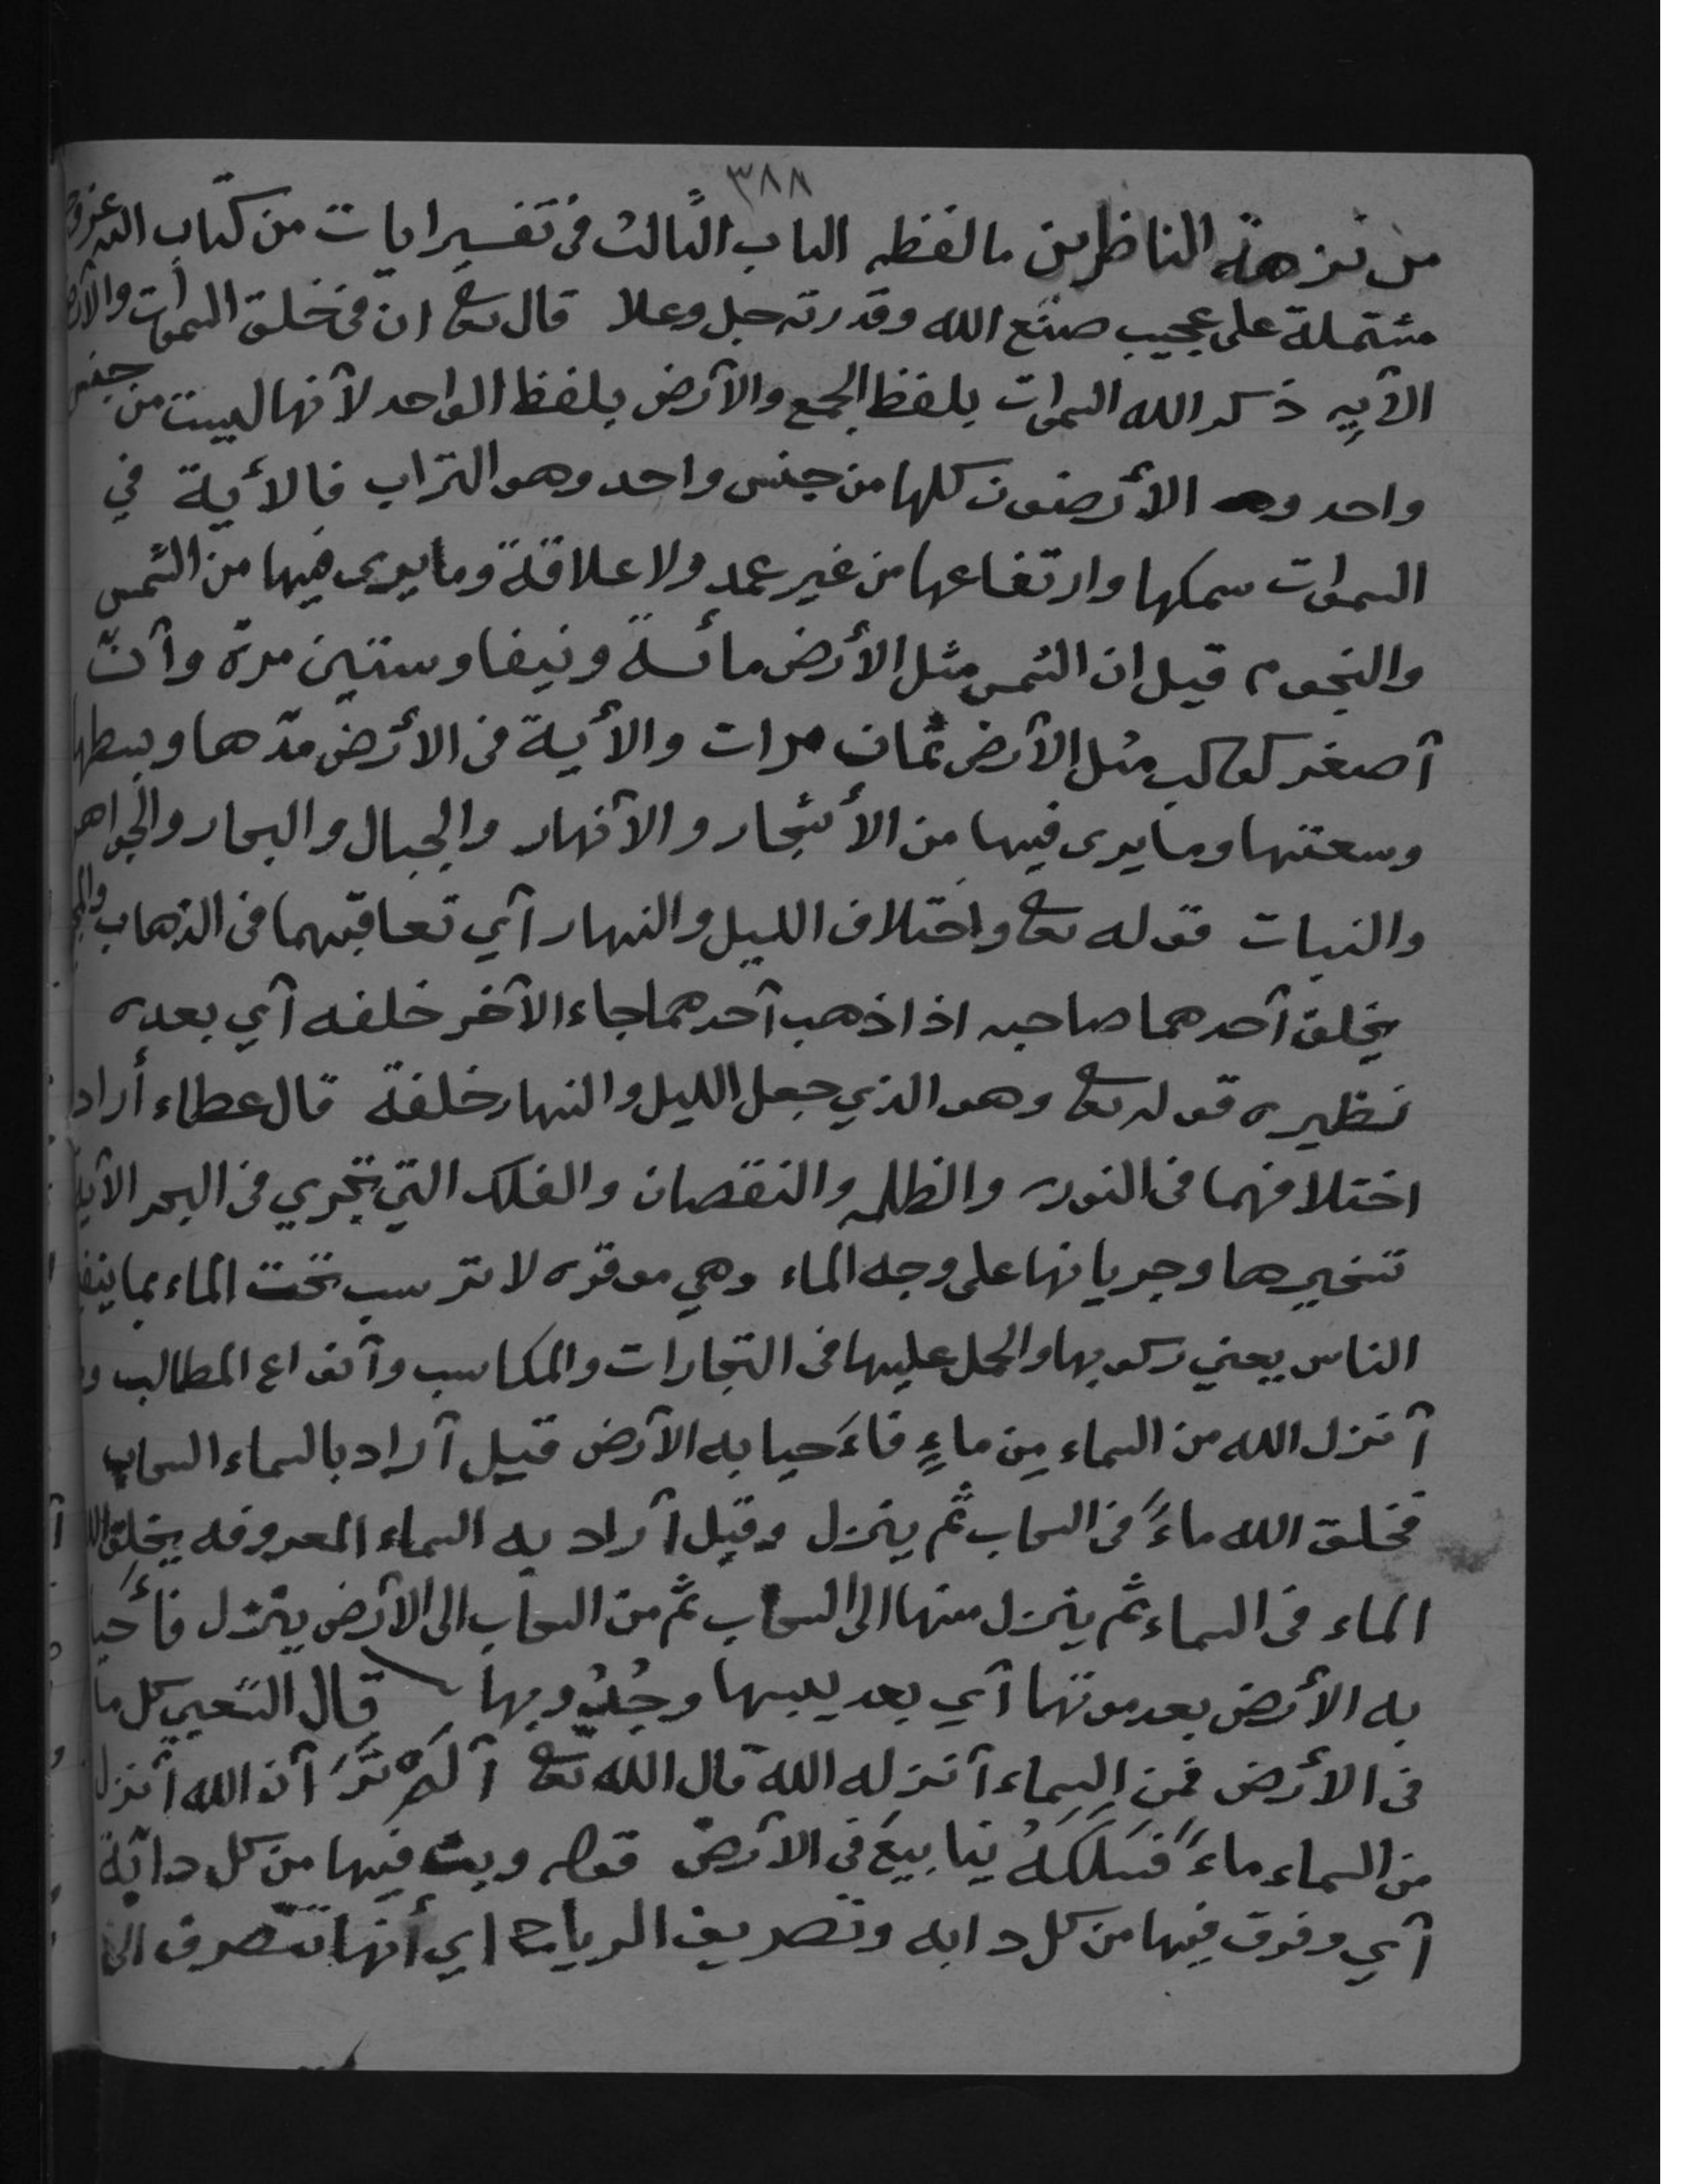 ٣٨٨
من نزهة الناظرين ما لفظه الباب الثالث فى تفسير ايات من كتاب الله عز وجل
مشتملة على عجيب صنع الله وقدرته جل وعلا قال تعا ان فى خلق السموات والأرض
الآيه ذكر الله السموات بلفظ الجمع والأرض بلفظ الواحد لأنها ليست من جنس
واحد و الأرضون كلها من جنس واحد وهو التراب فالأية في
السموات سمكها وارتفاعها من غير عمد ولا علاقة وما يرى فيها من الشمس
والنجوم قيل ان الشمس مثل الأرض مائة ونيفا وستين مرة وأنّ
أصغر كوكب مثل الأرض ثمان مرات والأية فى الأرض مدّها وبسطها
وسعتها وما يرى فيها من الأشجار والأنهار والجبال والبحار والجواهر
والنبات قوله تعا واختلاف الليل والنهار أي تعاقبهما فى الذهاب
يخلف أحدهما صاحبه اذا ذهب أحدهما جاء الآخر خلفه أي بعده
نظيره قوله تعا وهو الذي جعل الليل والنهار خلفة قال عطاء أراد
اختلافهما فى النور والظلمه والنقصان والفلك التي تجري فى البحر الآية
تسخيرها وجريانها على وجه الماء وهي موقره لا ترسب تحت الماء بما ينفع
الناس يعني ركوبها والحمل عليها فى التجارات والمكاسب وأنواع المطالب
أنزل الله من السماء مِن ماءٍ فأَحيا به الأرض قيل أراد بالسماء السحاب
فخلق الله ماءً فى السحاب ثم ينزل وقيل أراد به السماء المعروفه يخلق الله
الماء فى السماء ثم ينزل منها الى السحاب ثم من السحاب الى الأرض ينزل فأَحيا
به الأرض بعد موتها أي بعد يبسها وجُدُوبها قال الشعبي كل ما
فى الأرض فمن السماء أنزله الله قال الله تعا أَلَمْ تَرَ أن الله أنزل
من السماء ماءً فَسَلَكَهُ ينابيعَ فى الأرض قوله وبث فيها من كل دابّة
أي وفرق فيها من كل دابه وتصريف الرياح اي أنها تتصرف الى